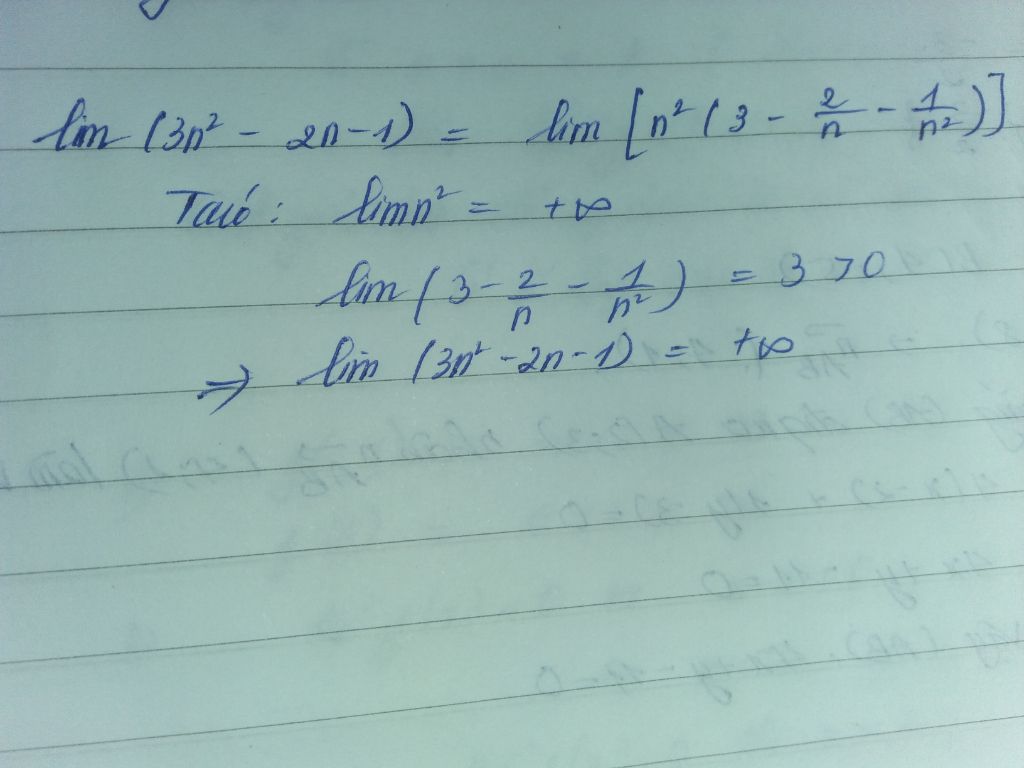 lim (3n² - 2n - 1) = lim [n² (3 - 2/n - 1/n²)]
Ta có : lim n² = +∞
lim (3 - 2/n - 1/n²) = 3 > 0
⇒ lim (3n² - 2n - 1) = +∞